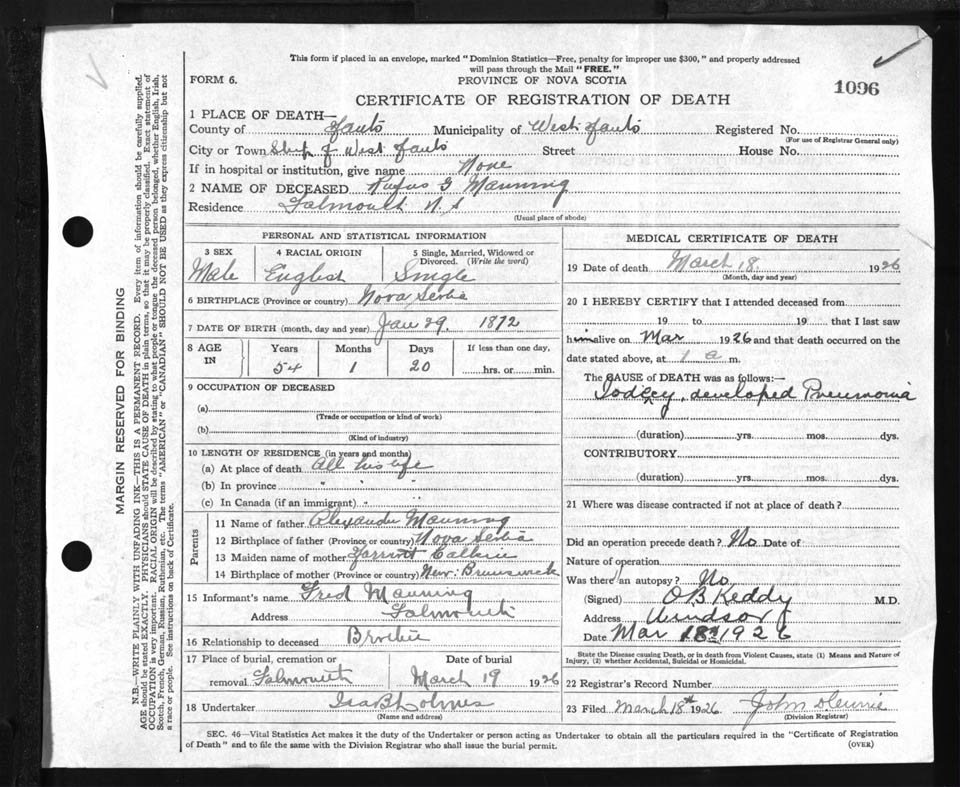 This form if placed in an envelope, marked "Dominion Statistics—Free, penalty for improper use $300," and properly addressed
will pass through the Mail "FREE."
FORM 6.
PROVINCE OF NOVA SCOTIA
1096
CERTIFICATE OF REGISTRATION OF DEATH
1 PLACE OF DEATH—
County of Hants Municipality of West Hants Registered No.
(For use of Registrar General only)
City or Town West Hants Street House No.
If in hospital or institution, give name None
2 NAME OF DECEASED Rufus G Manning
Residence Falmouth N. S
(Usual place of abode)
PERSONAL AND STATISTICAL INFORMATION
3 SEX 4 RACIAL ORIGIN 5 Single, Married, Widowed or
Divorced. (Write the word)
Male English Single
6 BIRTHPLACE (Province or country) Nova Scotia
7 DATE OF BIRTH (month, day and year) Jan 29 1872
8 AGE IN Years Months Days If less than one day,
54 1 20 hrs. or min.
9 OCCUPATION OF DECEASED
(a)
(Trade or occupation or kind of work)
(b)
(Kind of industry)
10 LENGTH OF RESIDENCE (in years and months)
(a) At place of death All his life
(b) In province " " "
(c) In Canada (if an immigrant) " "
Parents
11 Name of father Alexander Manning
12 Birthplace of father (Province or country) Nova Scotia
13 Maiden name of mother Calkin
14 Birthplace of mother (Province or country) New Brunswick
15 Informant's name Fred Manning
Address Falmouth
16 Relationship to deceased Brother
17 Place of burial, cremation or Date of burial
removal Falmouth March 19 1926
18 Undertaker Ira B Holmes
(Name and address)
MEDICAL CERTIFICATE OF DEATH
19 Date of death March 18 1926
(Month, day and year)
20 I HEREBY CERTIFY that I attended deceased from
19 to 19 that I last saw
him alive on Mar 1926 and that death occurred on the
date stated above, at 1 a m.
The CAUSE OF DEATH was as follows:—
developed Pneumonia
(duration) yrs. mos. dys.
CONTRIBUTORY
(duration) yrs. mos. dys.
21 Where was disease contracted if not at place of death?
Did an operation precede death? No Date of
Nature of operation
Was there an autopsy? No
(Signed) O B Keddy M.D.
Address Windsor
Date Mar 18th 1926
State the Disease causing Death, or in death from Violent Causes, state (1) Means and Nature of
Injury, (2) whether Accidental, Suicidal or Homicidal.
22 Registrar's Record Number
23 Filed March 18th 1926 John
(Division Registrar)
SEC. 46—Vital Statistics Act makes it the duty of the Undertaker or person acting as Undertaker to obtain all the particulars required in the "Certificate of Registration
of Death" and to file the same with the Division Registrar who shall issue the burial permit.
(OVER)
MARGIN RESERVED FOR BINDING
N.B.—WRITE PLAINLY WITH UNFADING INK—THIS IS A PERMANENT RECORD. Every item of information should be carefully supplied.
AGE should be stated EXACTLY. PHYSICIANS should STATE CAUSE OF DEATH in plain terms, so that it may be properly classified. Exact statement of
OCCUPATION is very important. RACIAL ORIGIN will be described by stating to what people or tongue the deceased person belonged, whether English, Irish,
Scotch, French, German, Russian, Ruthenian, etc. The terms "AMERICAN" or "CANADIAN" SHOULD NOT BE USED as they express citizenship but not
a race or people. See instructions on back of Certificate.